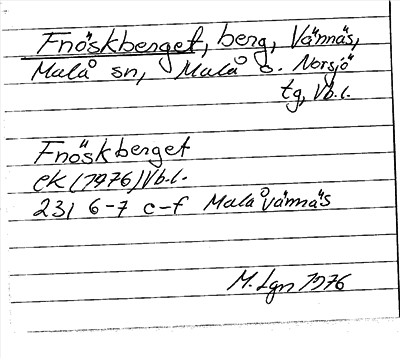 Fnöskberget, berg, Vännäs,
Malå sn, Malå o. Norsjö
tg, Vb.l.
Fnöskberget
ek (1976) Vb.l.
23I 6-7 c-f Malåvännäs
M. Lgn 1976